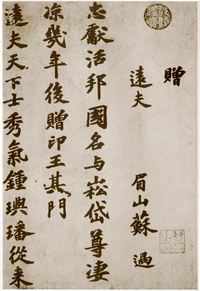 贈
遠夫 眉山蘇過
忠獻活邦國名与崧岱尊凄
凉幾年後贈印王其門
遠夫天下士秀氣鍾璵璠從来